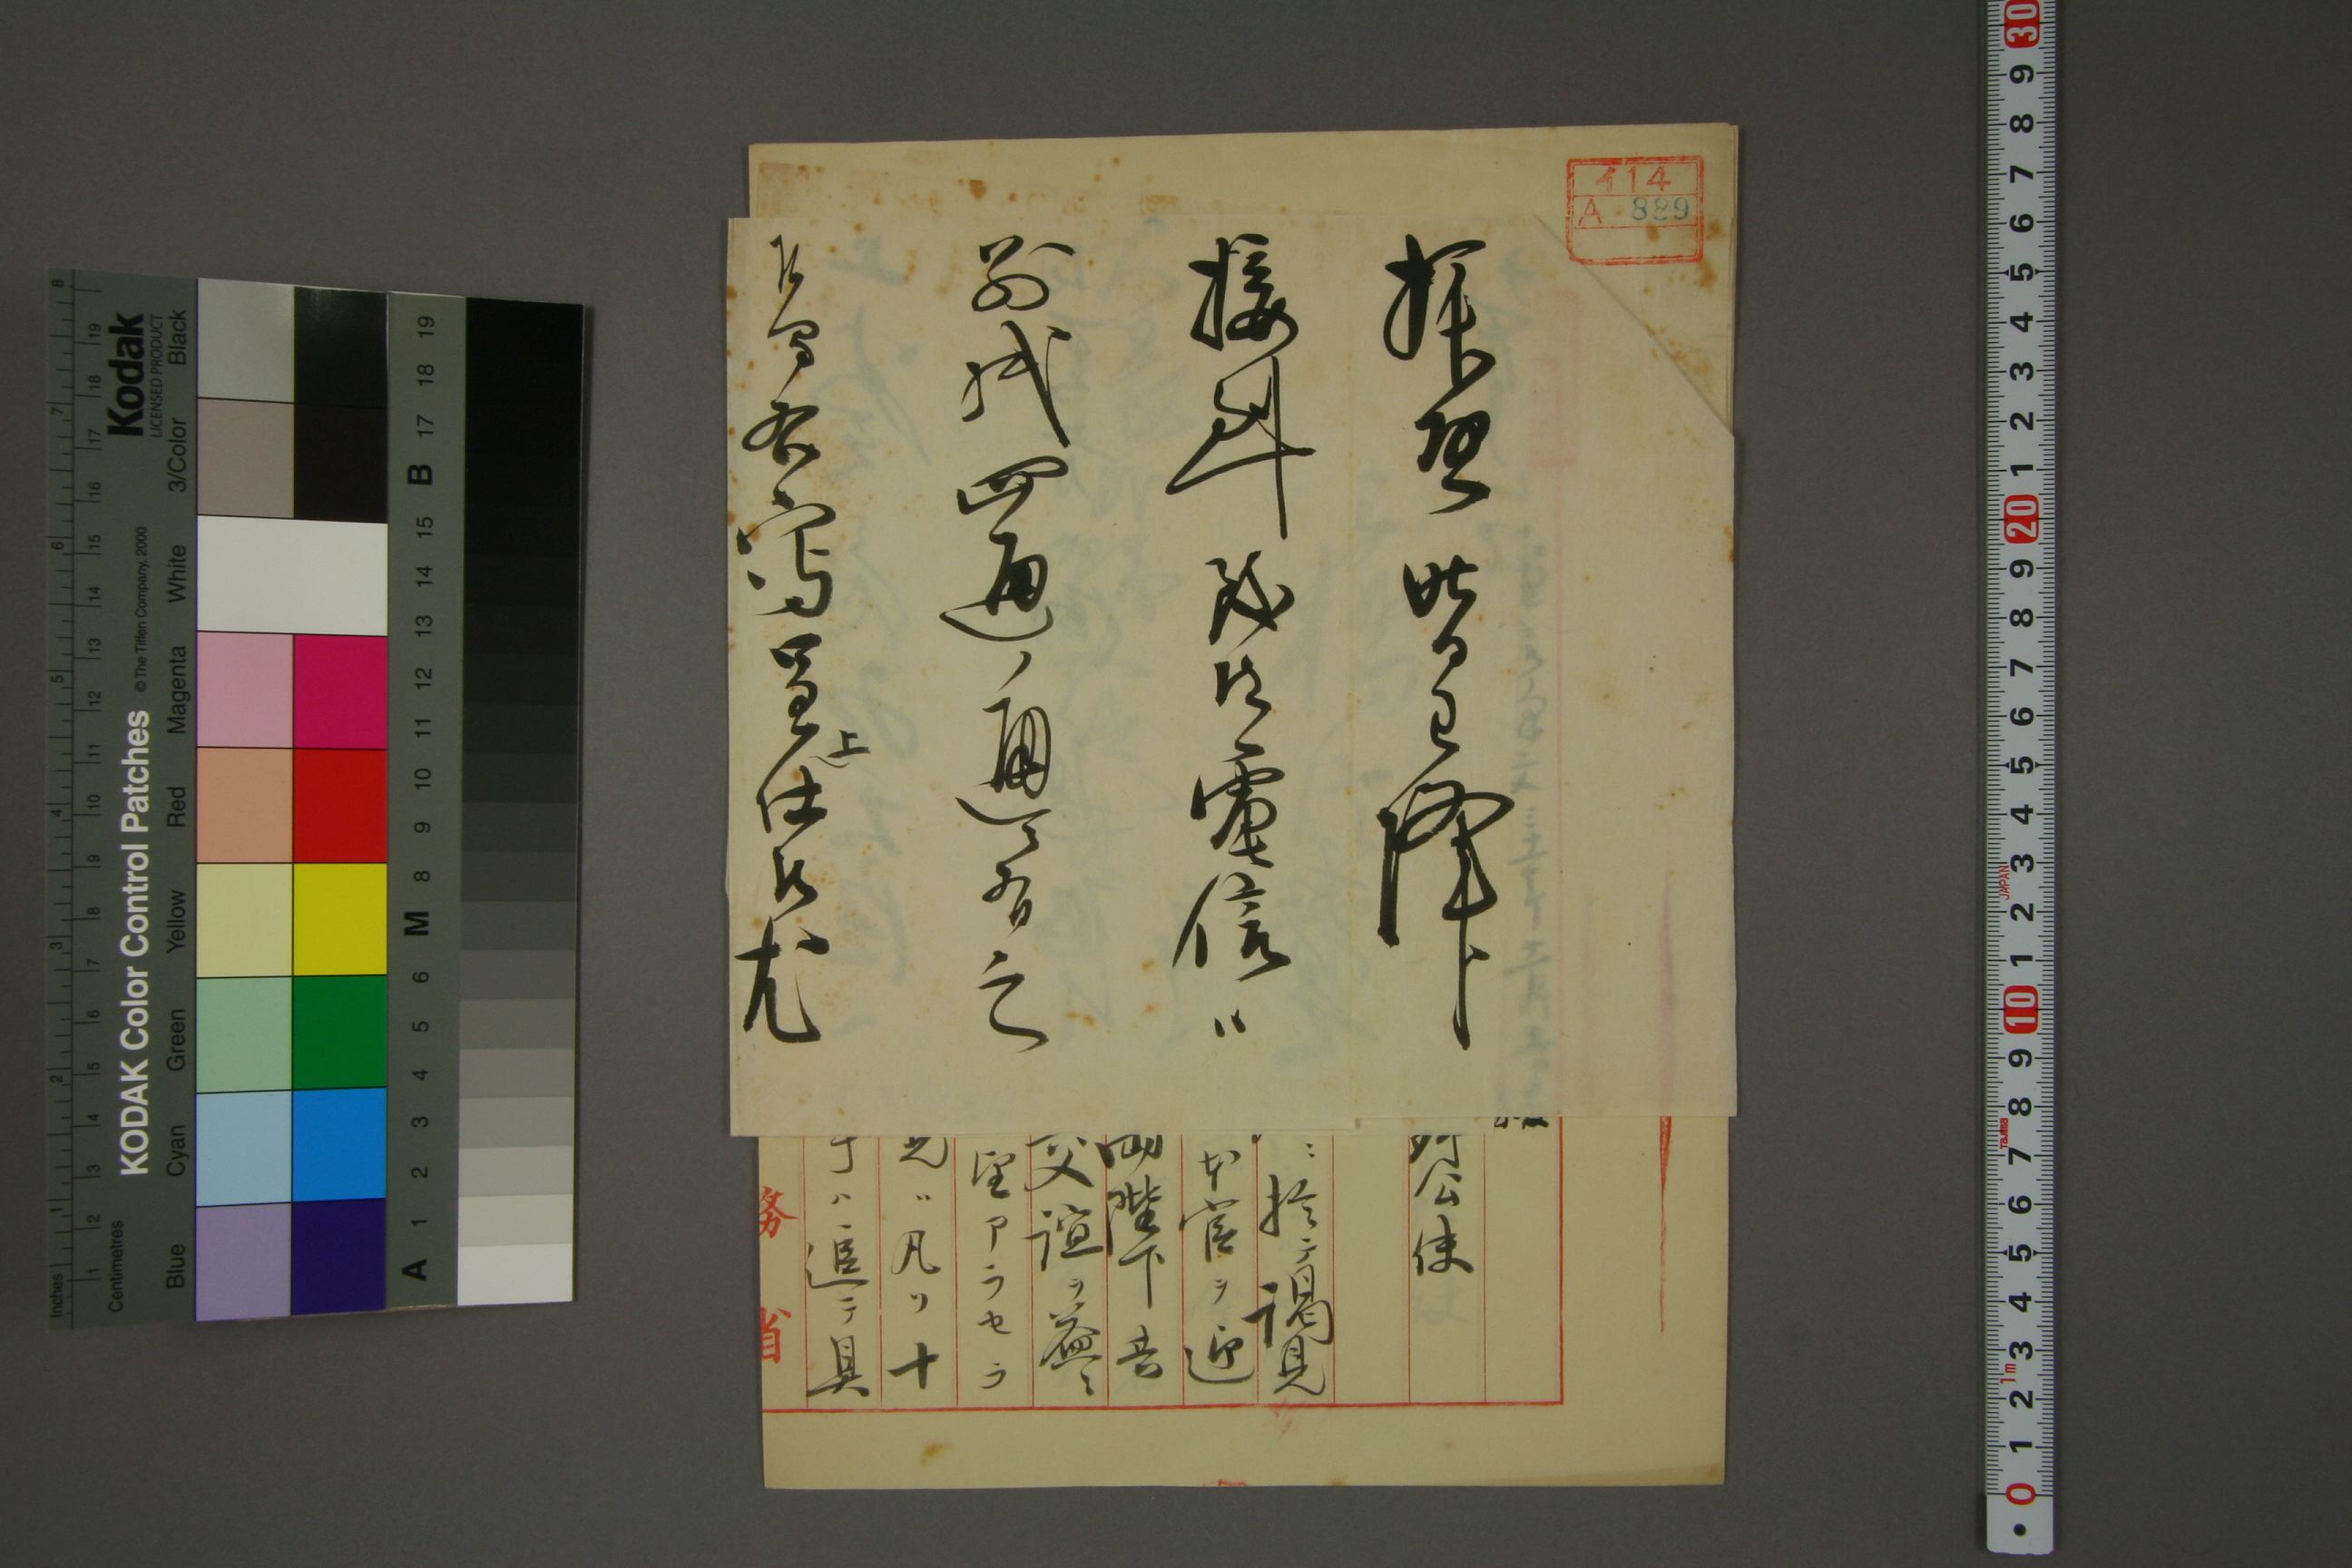 イ14
A 889
拝啓 昨日已降
接到致候電信ハ
別紙四通ノ通ニ有之
候間右写呈上仕候尤
公使
ニ於テ謁見
本官ヲ迎
両陛下共
交誼ヲ益々
望アラセラ
凡ソ十
ハ追テ具
務省
Kodak
LICENSED PRODUCT
KODAK Color Control Patches
© The Tiffen Company, 2000
Blue Cyan Green Yellow Red Magenta White 3/Color Black
Inches 1 2 3 4 5 6 7 8
Centimetres 1 2 3 4 5 6 7 8 9 10 11 12 13 14 15 16 17 18 19
A 1 2 3 4 5 6 M 8 9 10 11 12 13 14 15 B 17 18 19
0 1 2 3 4 5 6 7 8 9 10 1 2 3 4 5 6 7 8 9 20 1 2 3 4 5 6 7 8 9 30
1m
Tajima
JAPAN